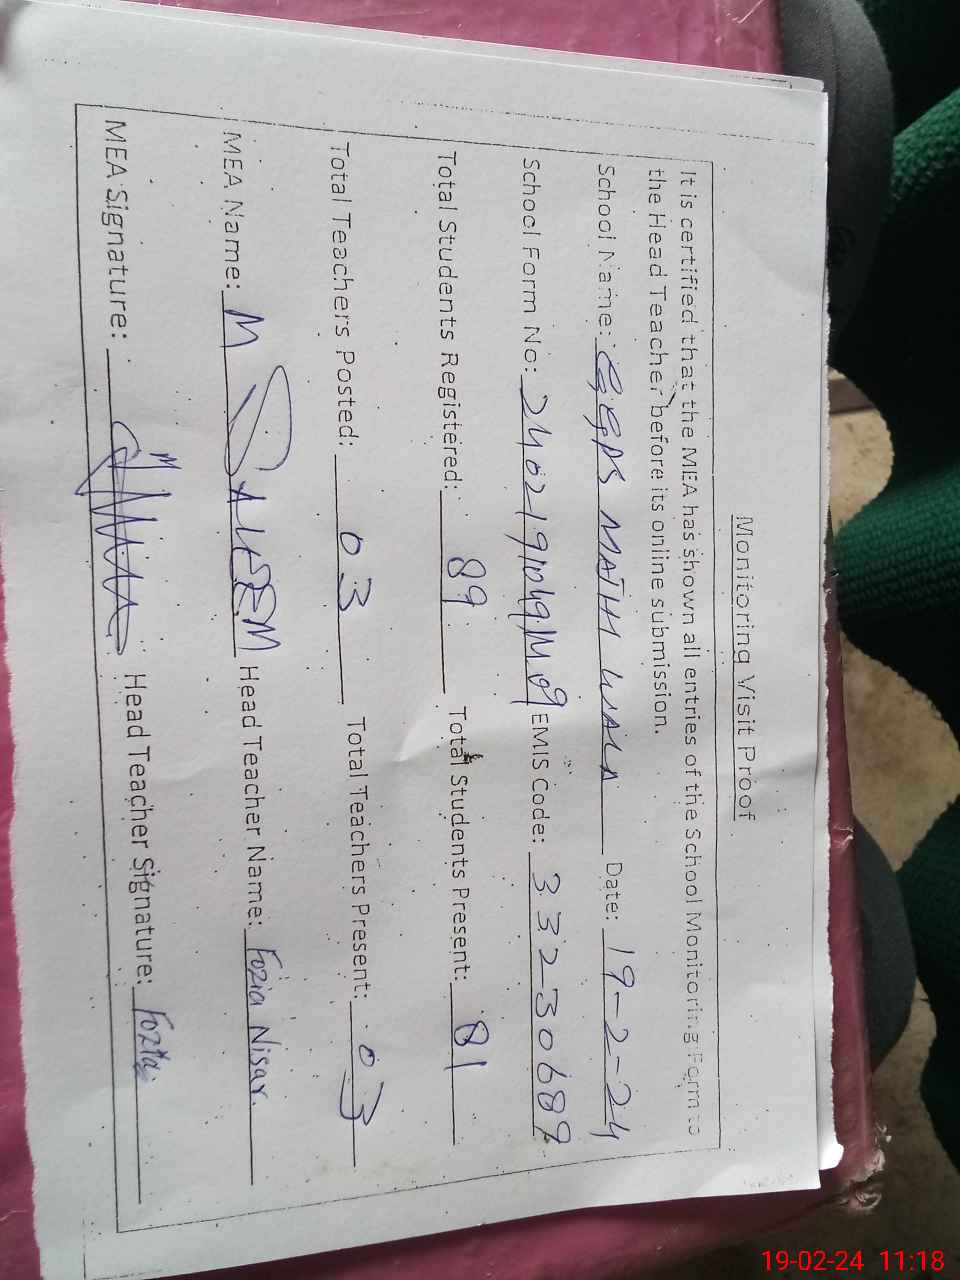 Monitoring Visit Proof
It is certified that the MEA has shown all entries of the School Monitoring Form to
the Head Teacher before its online submission.
School Name: GGPS MATH WALA Date: 19-2-24
School Form No: EMIS Code: 332-30689
Total Students Registered: 89 Total Students Present: 81
Total Teachers Posted: 03 Total Teachers Present: 03
MEA Name: M SALEEM Head Teacher Name: Fozia Nisar.
MEA Signature: Head Teacher Signature: Fozia
19-02-24 11:18